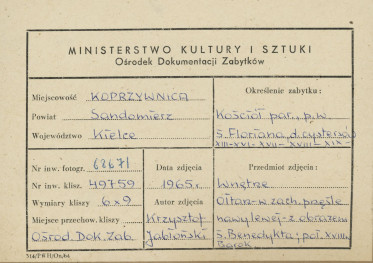 MINISTERSTWO KULTURY I SZTUKI
Ośrodek Dokumentacji Zabytków
Miejscowość KOPRZYWNICA
Powiat Sandomierz
Województwo Kielce
Określenie zabytku:
Kościół par., p.w.
ś. Floriana, d. cystersów
XIII-XVI-XVII-XVIII-XIX-
Nr inw. fotogr. 62671
Nr inw. klisz. 49759
Wymiary kliszy 6x9
Miejsce przechow. kliszy
Ośrod. Dok. Zab.
Data zdjęcia
1965 r.
Autor zdjęcia
Krzysztof
Jabłoński
Przedmiot zdjęcia:
Wnętrze
Ołtarz w zach. przęśle
nawy lewej - z obrazem
ś. Benedykta; poł. XVIII